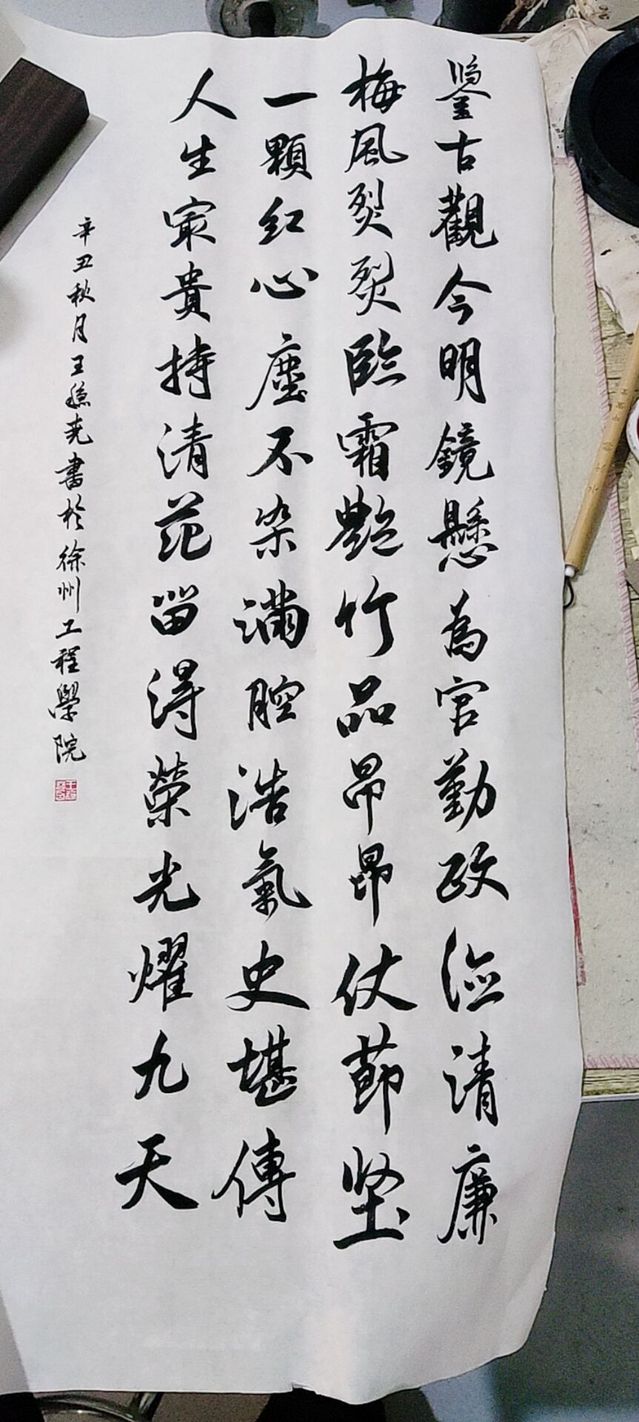 鑒古觀今明鏡懸為官勤政險清廉
梅風烈烈臨霜艷竹品昂昂仗節堅
一顆红心塵不染滿腔浩氣史堪傳
人生最貴持清范留得榮光耀九天
辛丑秋月王 書於徐州工程學院